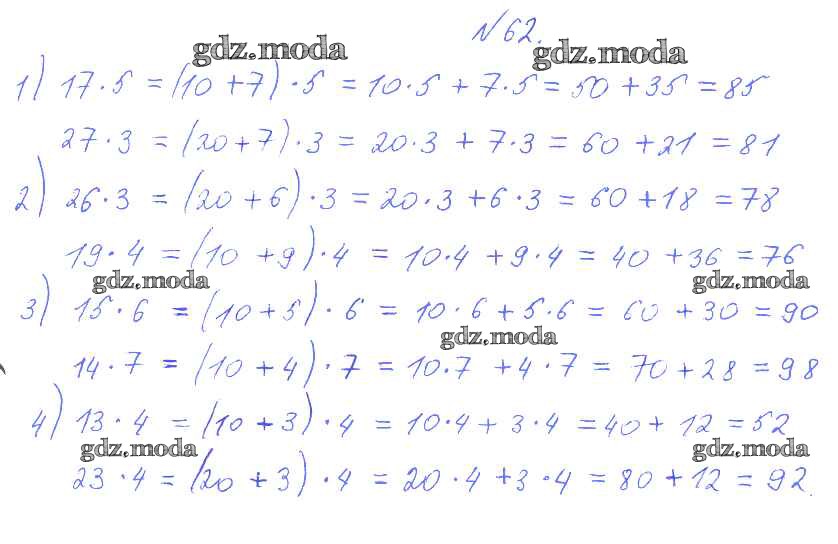 №62.
gdz.moda gdz.moda
1) 17·5 = (10+7)·5 = 10·5 + 7·5 = 50 + 35 = 85
27·3 = (20+7)·3 = 20·3 + 7·3 = 60 + 21 = 81
2) 26·3 = (20+6)·3 = 20·3 + 6·3 = 60 + 18 = 78
19·4 = (10+9)·4 = 10·4 + 9·4 = 40 + 36 = 76
gdz.moda gdz.moda
3) 15·6 = (10+5)·6 = 10·6 + 5·6 = 60 + 30 = 90
gdz.moda
14·7 = (10+4)·7 = 10·7 + 4·7 = 70 + 28 = 98
4) 13·4 = (10+3)·4 = 10·4 + 3·4 = 40 + 12 = 52
gdz.moda gdz.moda
23·4 = (20+3)·4 = 20·4 + 3·4 = 80 + 12 = 92.